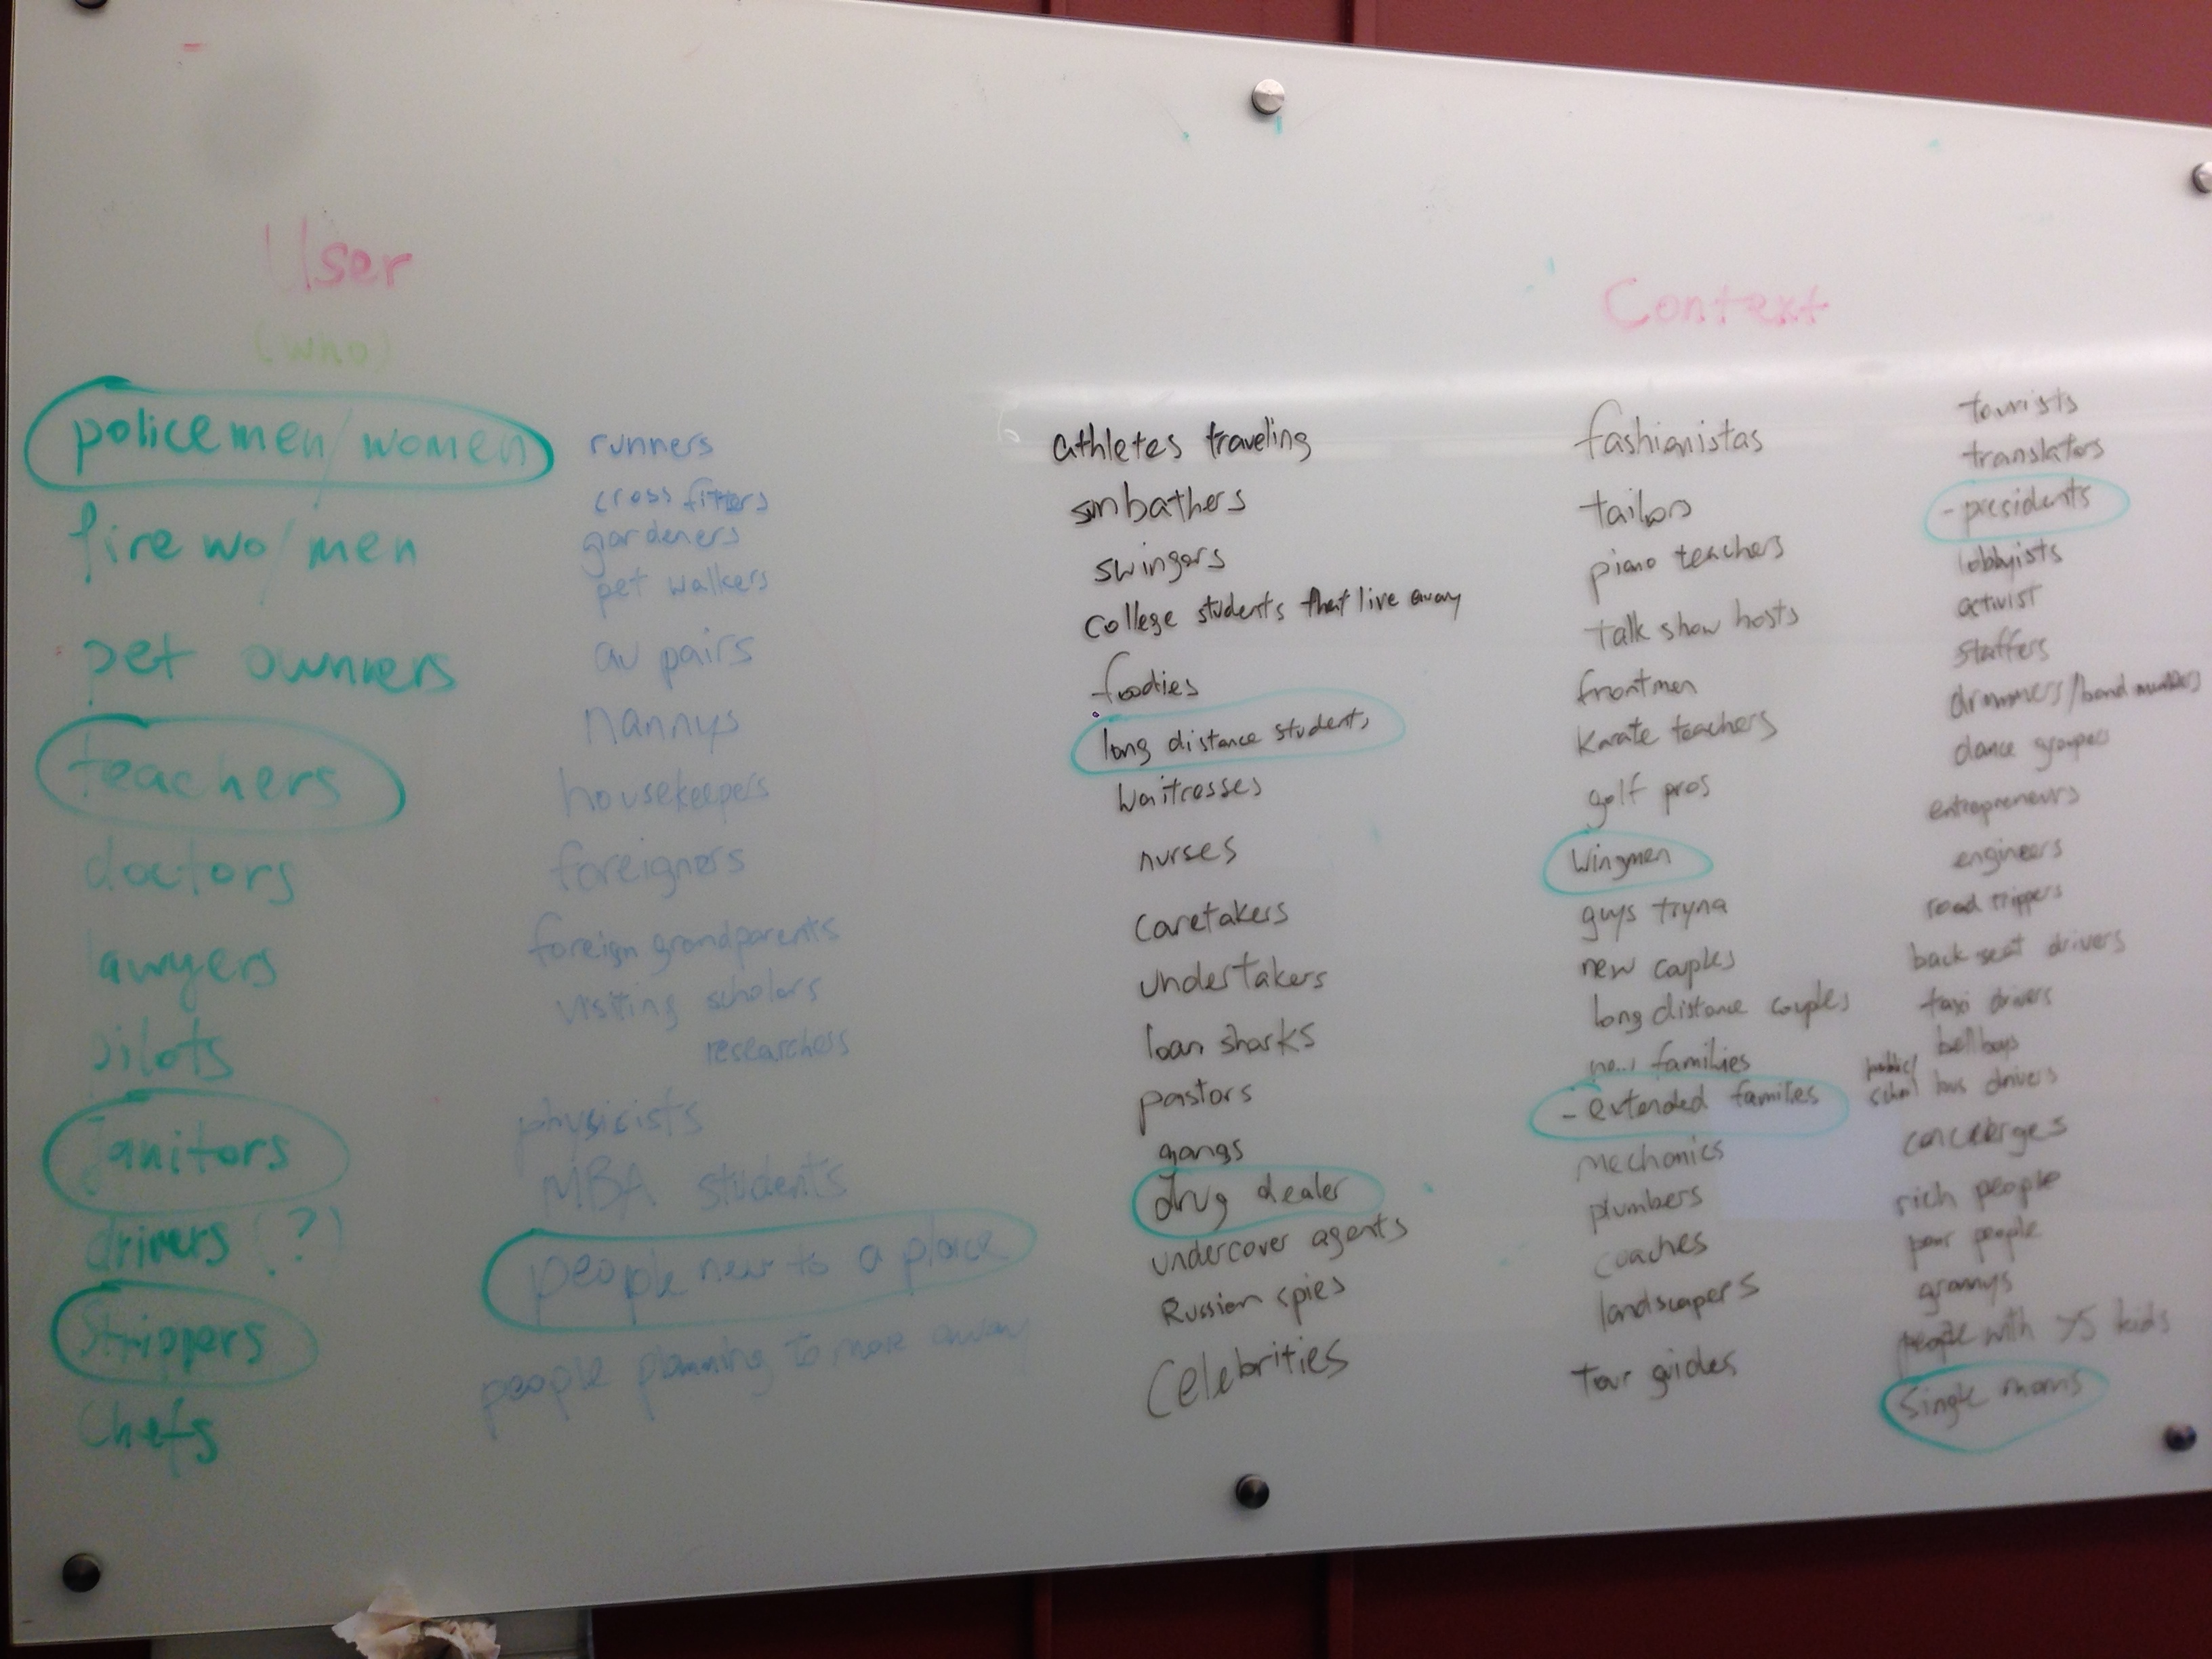 User
(who)
policemen/women
fire wo/men
pet owners
teachers
doctors
lawyers
pilots
janitors
drivers (?)
Strippers
Chefs
runners
cross fitters
gardeners
pet walkers
au pairs
nannys
housekeepers
foreigners
foreign grandparents
visiting scholars
researchers
physicists
MBA students
people new to a place
people planning to move away
athletes traveling
sunbathers
swingers
college students that live away
foodies
long distance students
waitresses
nurses
caretakers
undertakers
loan sharks
pastors
gangs
drug dealer
undercover agents
Russian spies
Celebrities
Context
fashionistas
tailors
piano teachers
talk show hosts
frontmen
karate teachers
golf pros
wingmen
guys tryna
new couples
long distance couples
new families
- extended families
mechanics
plumbers
coaches
landscapers
tour guides
tourists
translators
- presidents
lobbyists
activist
staffers
drummers/band members
dance groupers
entrepreneurs
engineers
road trippers
back seat drivers
taxi drivers
bellboys
public/
school bus drivers
concierges
rich people
poor people
grannys
people with >5 kids
Single moms